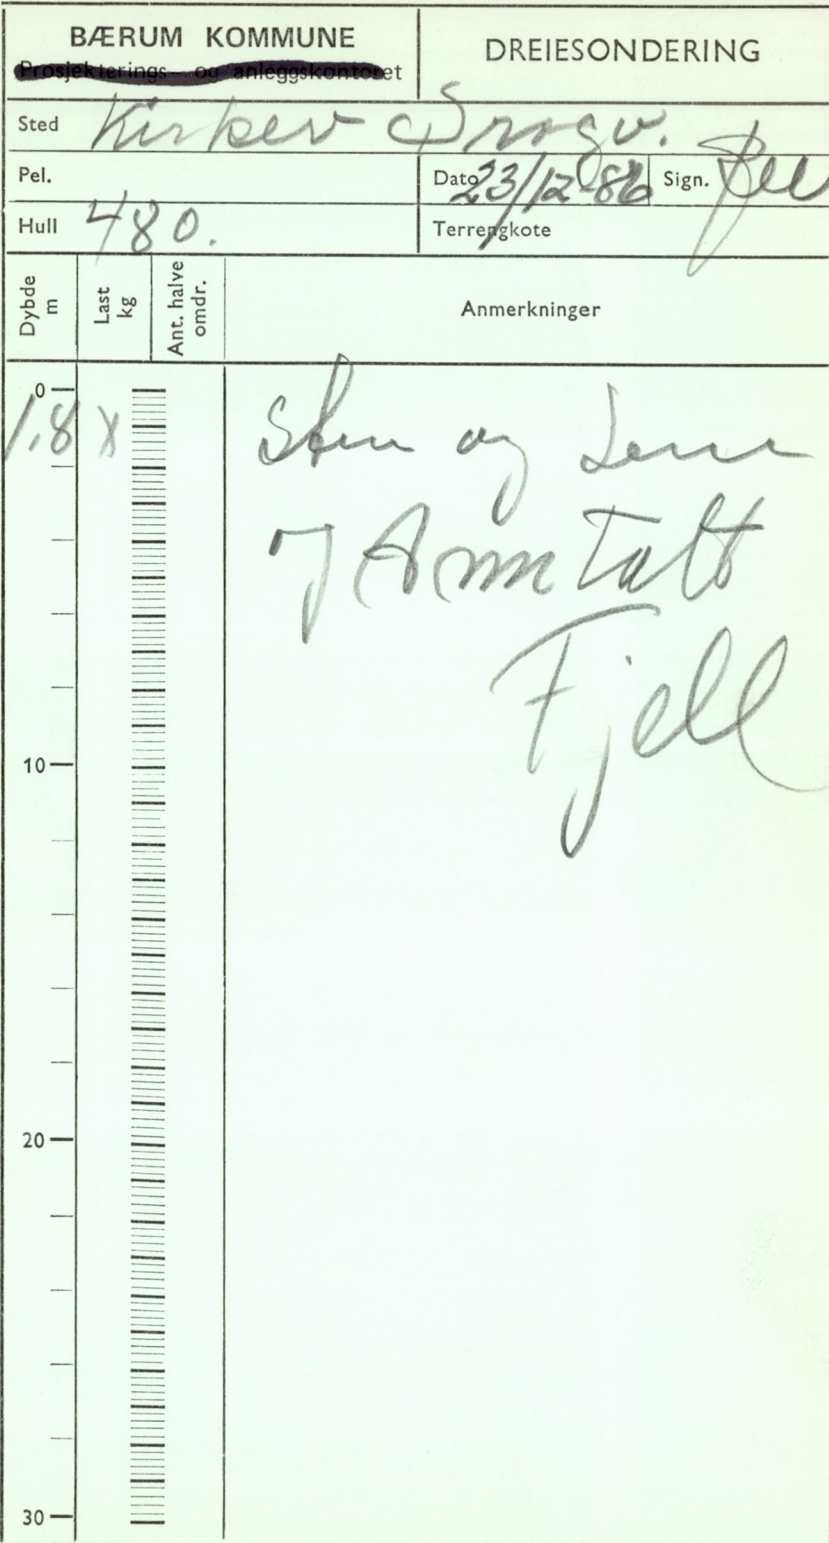 BÆRUM KOMMUNE
Prosjekterings- og anleggskontoret
DREIESONDERING
Sted Kirkev
Pel.
Dato 23/12-86 Sign.
Hull 480.
Terrengkote
Dybde m
Last kg
Ant. halve omdr.
Anmerkninger
0
1,8 x
Sten og
Fjell
10
20
30